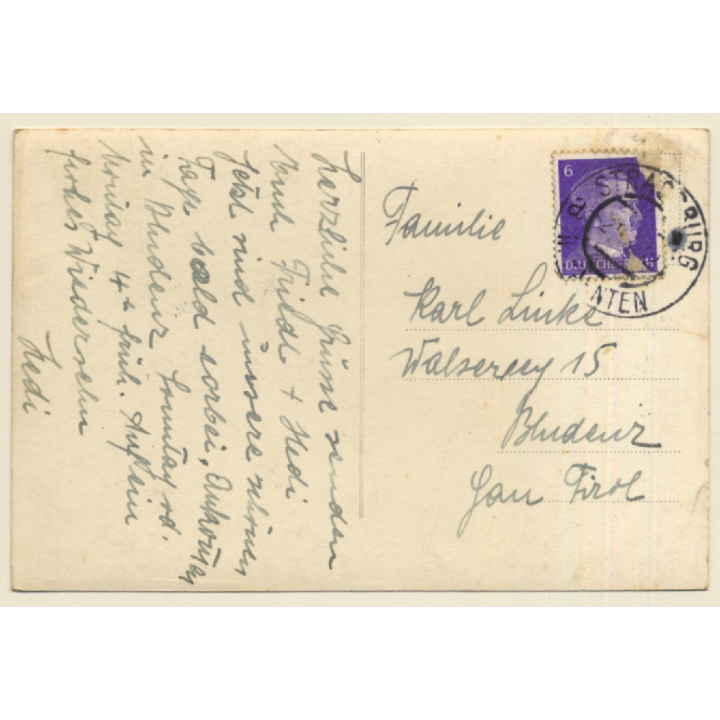 Herzliche Grüsse senden
Euch Friedl + Hedi
Jetzt sind unsere schönen
Tage bald vorbei, Ankunft
in Bludenz Sonntag od.
Montag 4h früh. Auf ein
frohes Wiedersehn
Hedi
Familie
Karl Linke
Walserweg 15
Bludenz
Gau Tirol
6
DEUTSCHES REICH
STRASSBURG